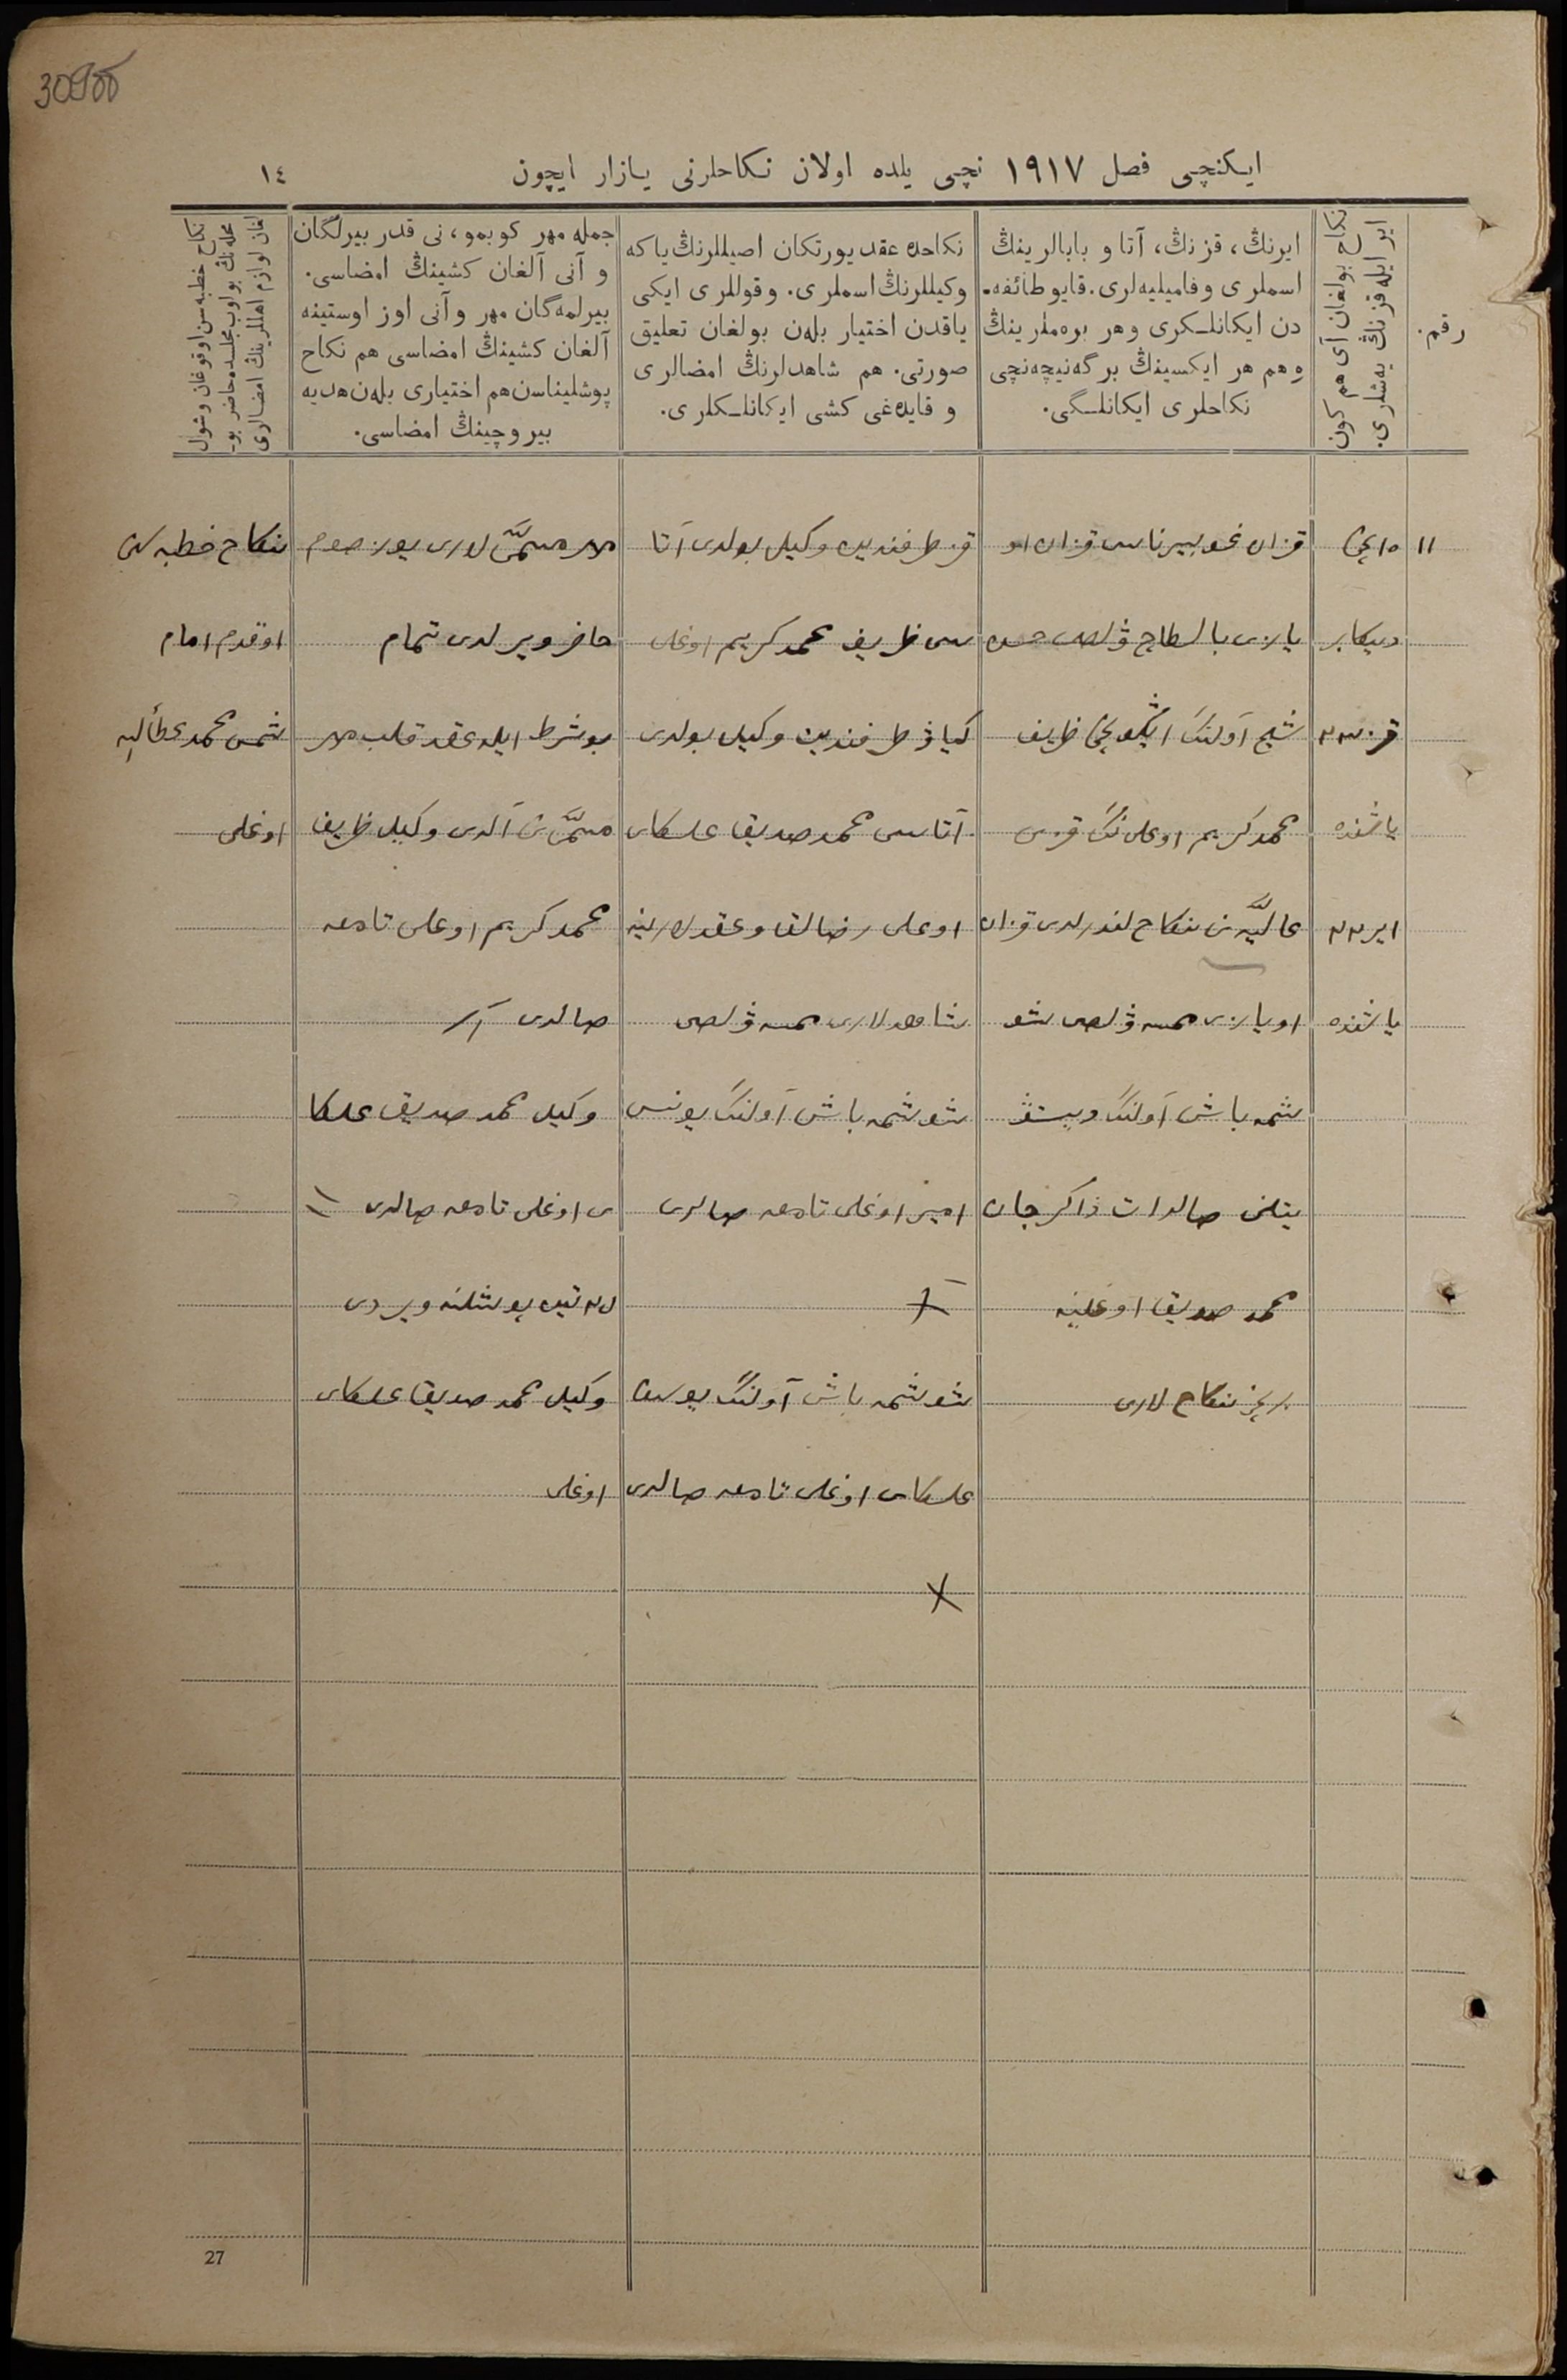 309об
ایکنچی فصل ١٩١٧ نچی یلده اولان نکاحلرنی یازار ایچون
١٤
رقم.
نکاح بولغان آی هم کون
ایر ایله قزنڭ یه‌شلری.
ایرنڭ، قزنڭ، آتا و بابالرینڭ
اسملری و فامیلیه‌لری. قایو طائفه‌-
دن ایکانلـکری و هر بره‌ملرینڭ
و هم هر ایکسینڭ بر گه‌نیچه‌نچی
نکاحلری ایکانلـگی.
نکاحده عقد یورتکان اصیللرنڭ یا که
وکیللرنڭ اسملری. و قوللری ایکی
یاقدن اختیار بله‌ن بولغان تعلیق
صورتی. هم شاهدلرنڭ امضالری
و قایده‌غی کشی ایکانلـکلری.
جمله مهر کوبمو، نی قدر بیرلگان
و آنی آلغان کشینڭ امضاسی.
بیرلمه‌گان مهر و آنی اوز اوستینه
آلغان کشینڭ امضاسی هم نکاح
پوشلیناسن هم اختیاری بله‌ن هدیه
بیروچینڭ امضاسی.
نکاح خطبه‌سن اوقوغان و شول
محله‌نڭ بولوب مجلسده حاضر بو-
لغان لوازم اهللرینڭ امضاری
١١
١٥ نچی
دیکابر
قز ٢٣
یاشنده
ایر ٢٢
یاشنده
قزان غوبیرناسی قزان او
یازی بالطاچ ۋلصی
شیچ آولنڭ ظریف
محمد کریم اوغلی ننڭ قزی
عالیّه نی نکاحلندرلدی قزان
اویازی ۋلصی شو
شمه باش آولنڭ
صالدات ذاکرجان
محمد صدیق اوغلینه
برنچی نکاح لاری
قز طرفندین وکیل بولدی آتا
سی ظریف محمد کریم اوغلی
کیاۋ طرفندین وکیل بولدی
آتاسی محمد صدیق
اوغلی رضالق و عقد لارینه
شاهدلاری ۋلصی
شو شمه باش آولنڭ یونس
امیر اوغلی تامغه صالدی
شو شمه باش آولنڭ
اوغلی تامغه صالدی
مهر مسمّی لاری یوز صوم
حاضر ویرلدی تمام
بو شرط ایله عقد قلب مهر
مسمّی نی آلدی وکیل ظریف
محمد کریم اوغلی تامغه
صالدی
وکیل محمد صدیق
اوغلی تامغه صالدی
تین پوشلنه ویردی
وکیل محمد صدیق
اوغلی
نکاح خطبه سن
اوقدم امام
شمس محمد عطأ الله
اوغلی
27